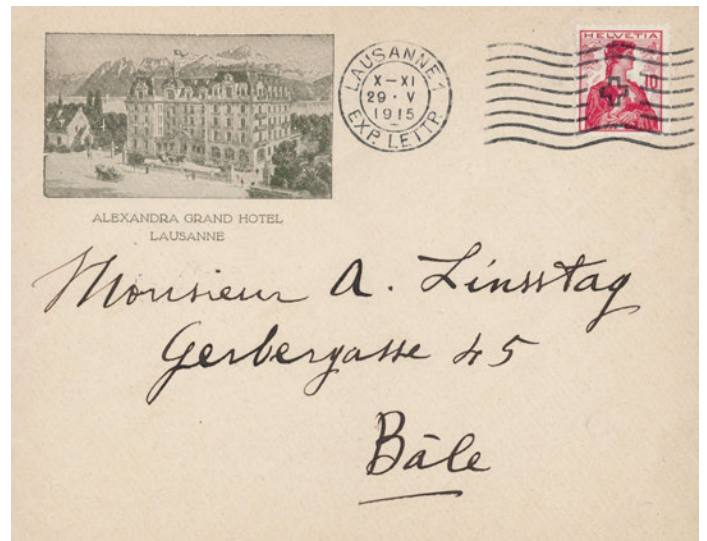 ALEXANDRA GRAND HOTEL
LAUSANNE
LAUSANNE 1
X–XI
29 · V
1915
EXP. LETTR.
HELVETIA
10
Monsieur A. Linsstag
Gerbergasse 45
Bâle